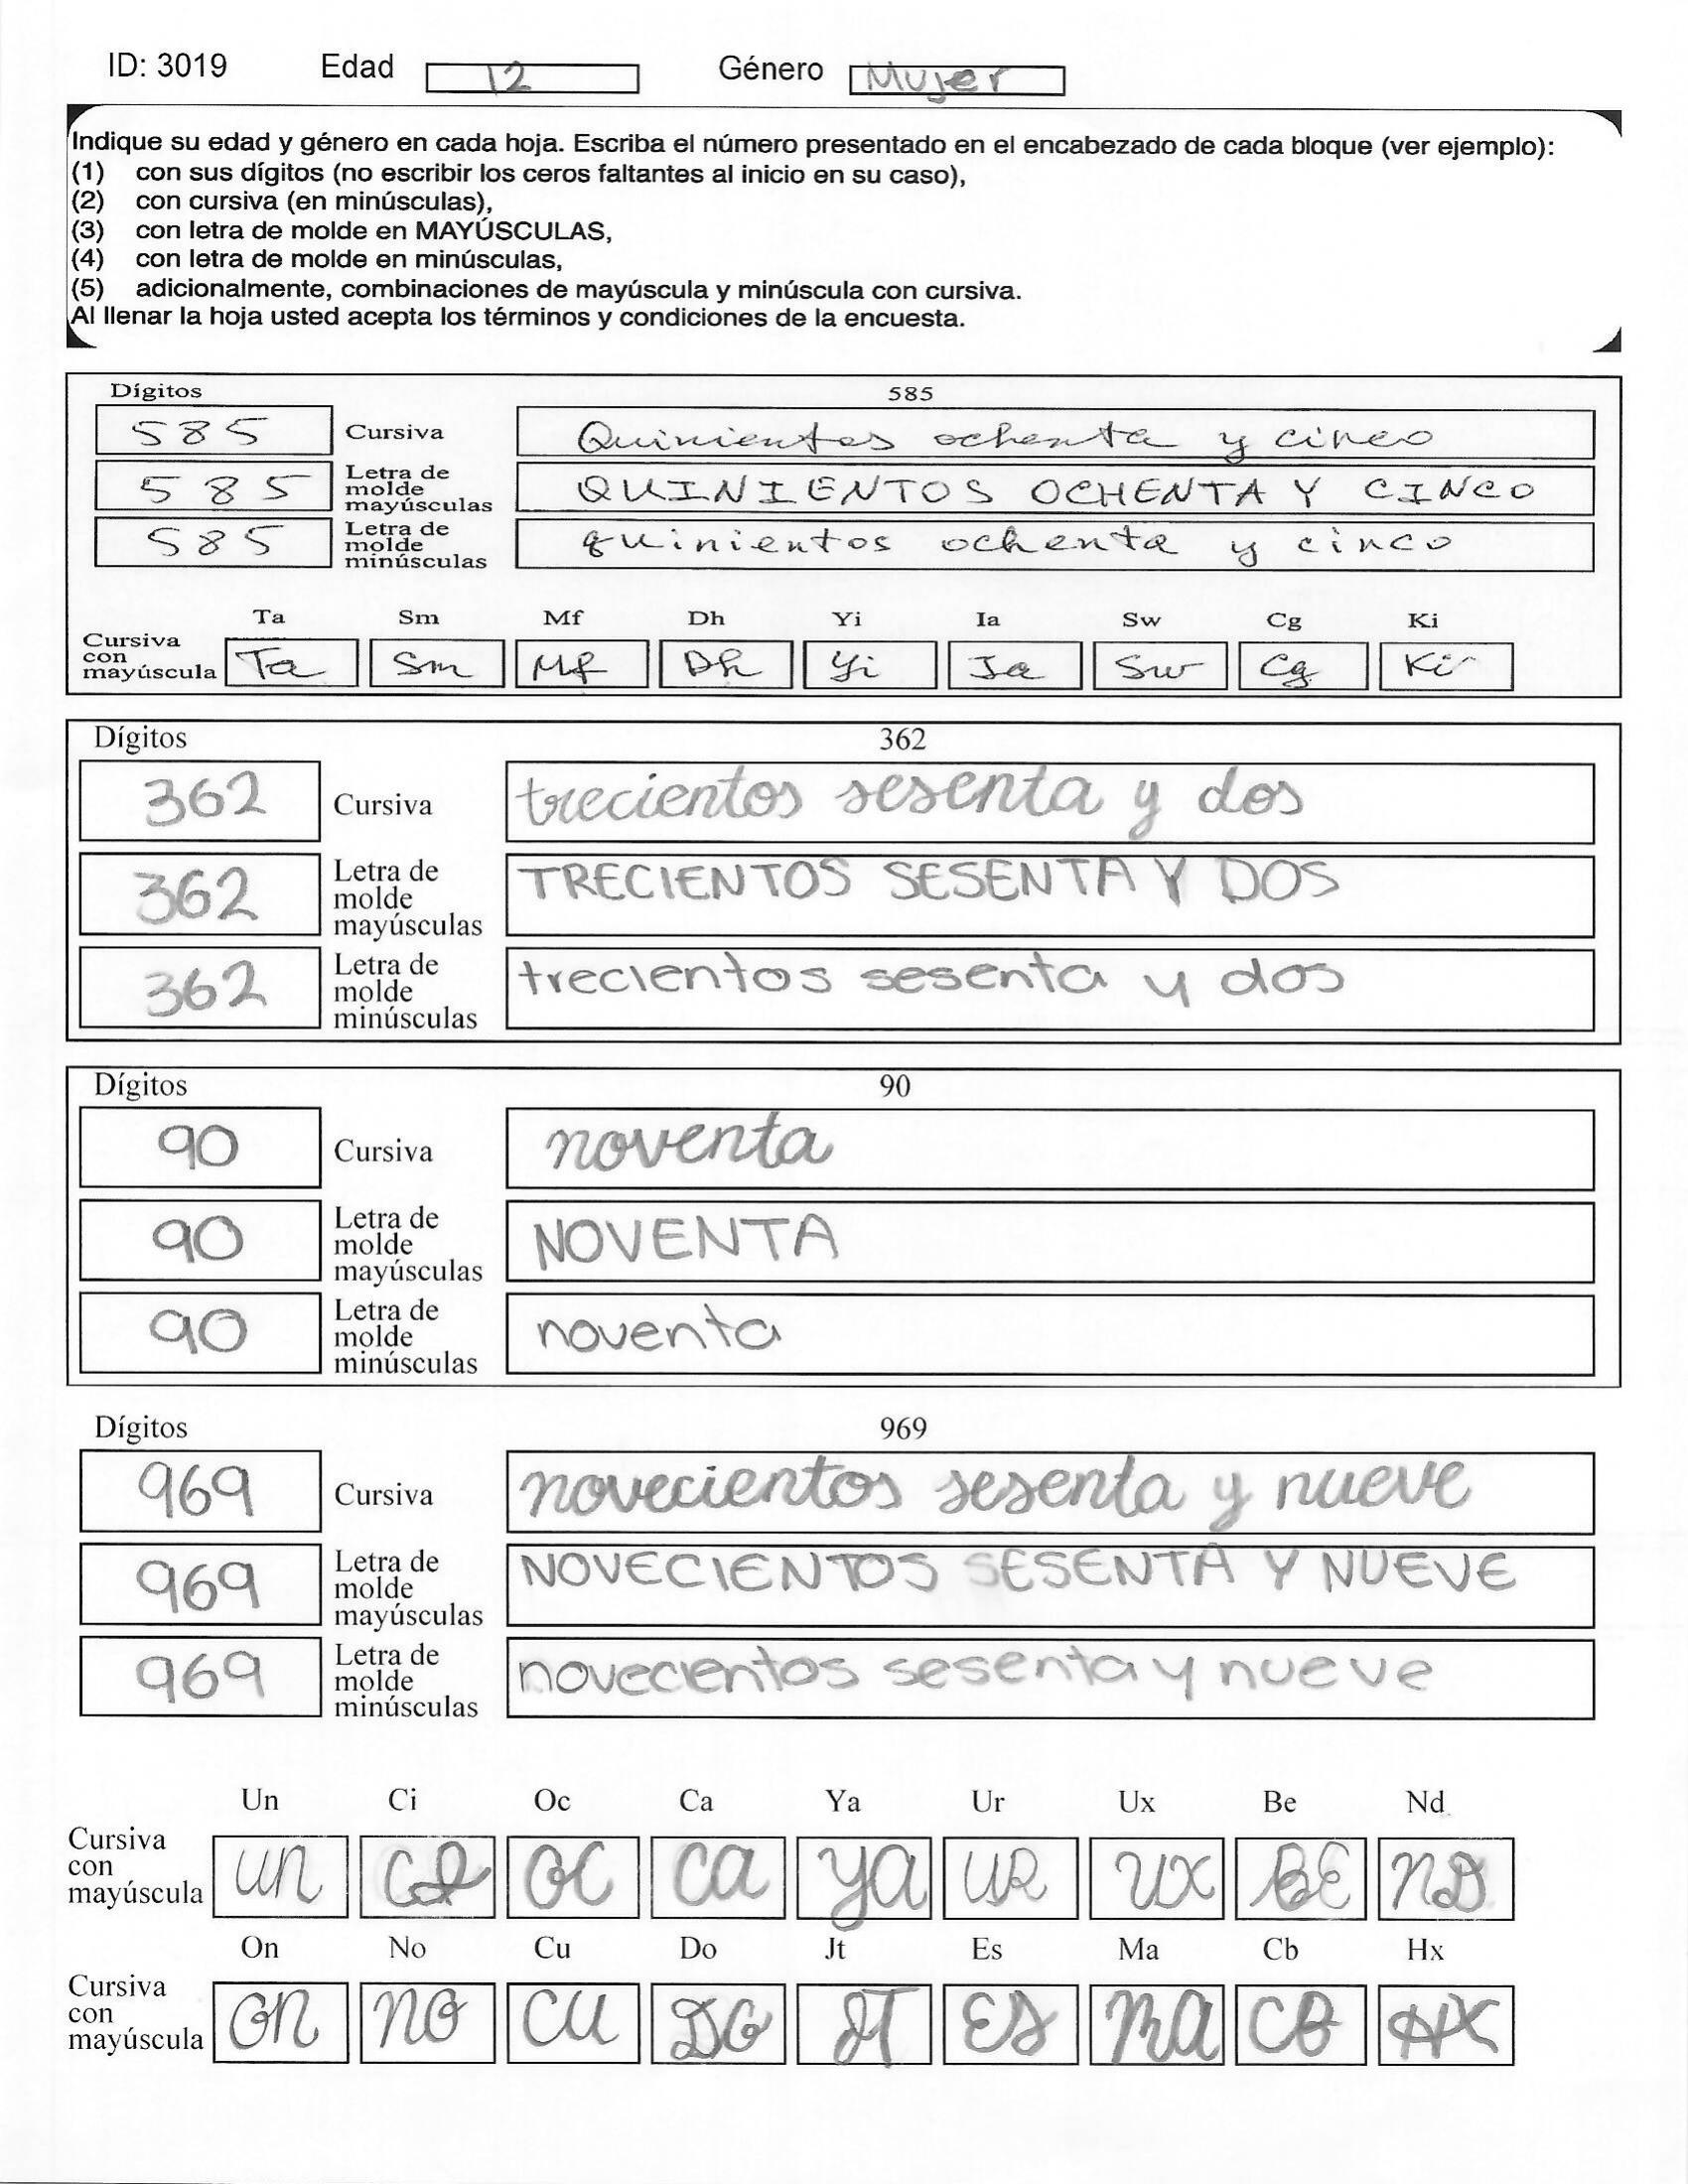 ID: 3019 Edad 12 Género Mujer
Indique su edad y género en cada hoja. Escriba el número presentado en el encabezado de cada bloque (ver ejemplo):
(1) con sus dígitos (no escribir los ceros faltantes al inicio en su caso),
(2) con cursiva (en minúsculas),
(3) con letra de molde en MAYÚSCULAS,
(4) con letra de molde en minúsculas,
(5) adicionalmente, combinaciones de mayúscula y minúscula con cursiva.
Al llenar la hoja usted acepta los términos y condiciones de la encuesta.
Dígitos 585
585 Cursiva Quinientos ochenta y cinco
585 Letra de molde mayúsculas QUINIENTOS OCHENTA Y CINCO
585 Letra de molde minúsculas quinientos ochenta y cinco
Ta Sm Mf Dh Yi Ia Sw Cg Ki
Cursiva con mayúscula Ta Sm Mf Dh Yi Ia Sw Cg Ki
Dígitos 362
362 Cursiva trecientos sesenta y dos
362 Letra de molde mayúsculas TRECIENTOS SESENTA Y DOS
362 Letra de molde minúsculas trecientos sesenta y dos
Dígitos 90
90 Cursiva noventa
90 Letra de molde mayúsculas NOVENTA
90 Letra de molde minúsculas noventa
Dígitos 969
969 Cursiva novecientos sesenta y nueve
969 Letra de molde mayúsculas NOVECIENTOS SESENTA Y NUEVE
969 Letra de molde minúsculas novecientos sesenta y nueve
Un Ci Oc Ca Ya Ur Ux Be Nd
Cursiva con mayúscula UN CI OC CA YA UR UX BE ND
On No Cu Do Jt Es Ma Cb Hx
Cursiva con mayúscula ON NO CU DO JT ES MA CB HX